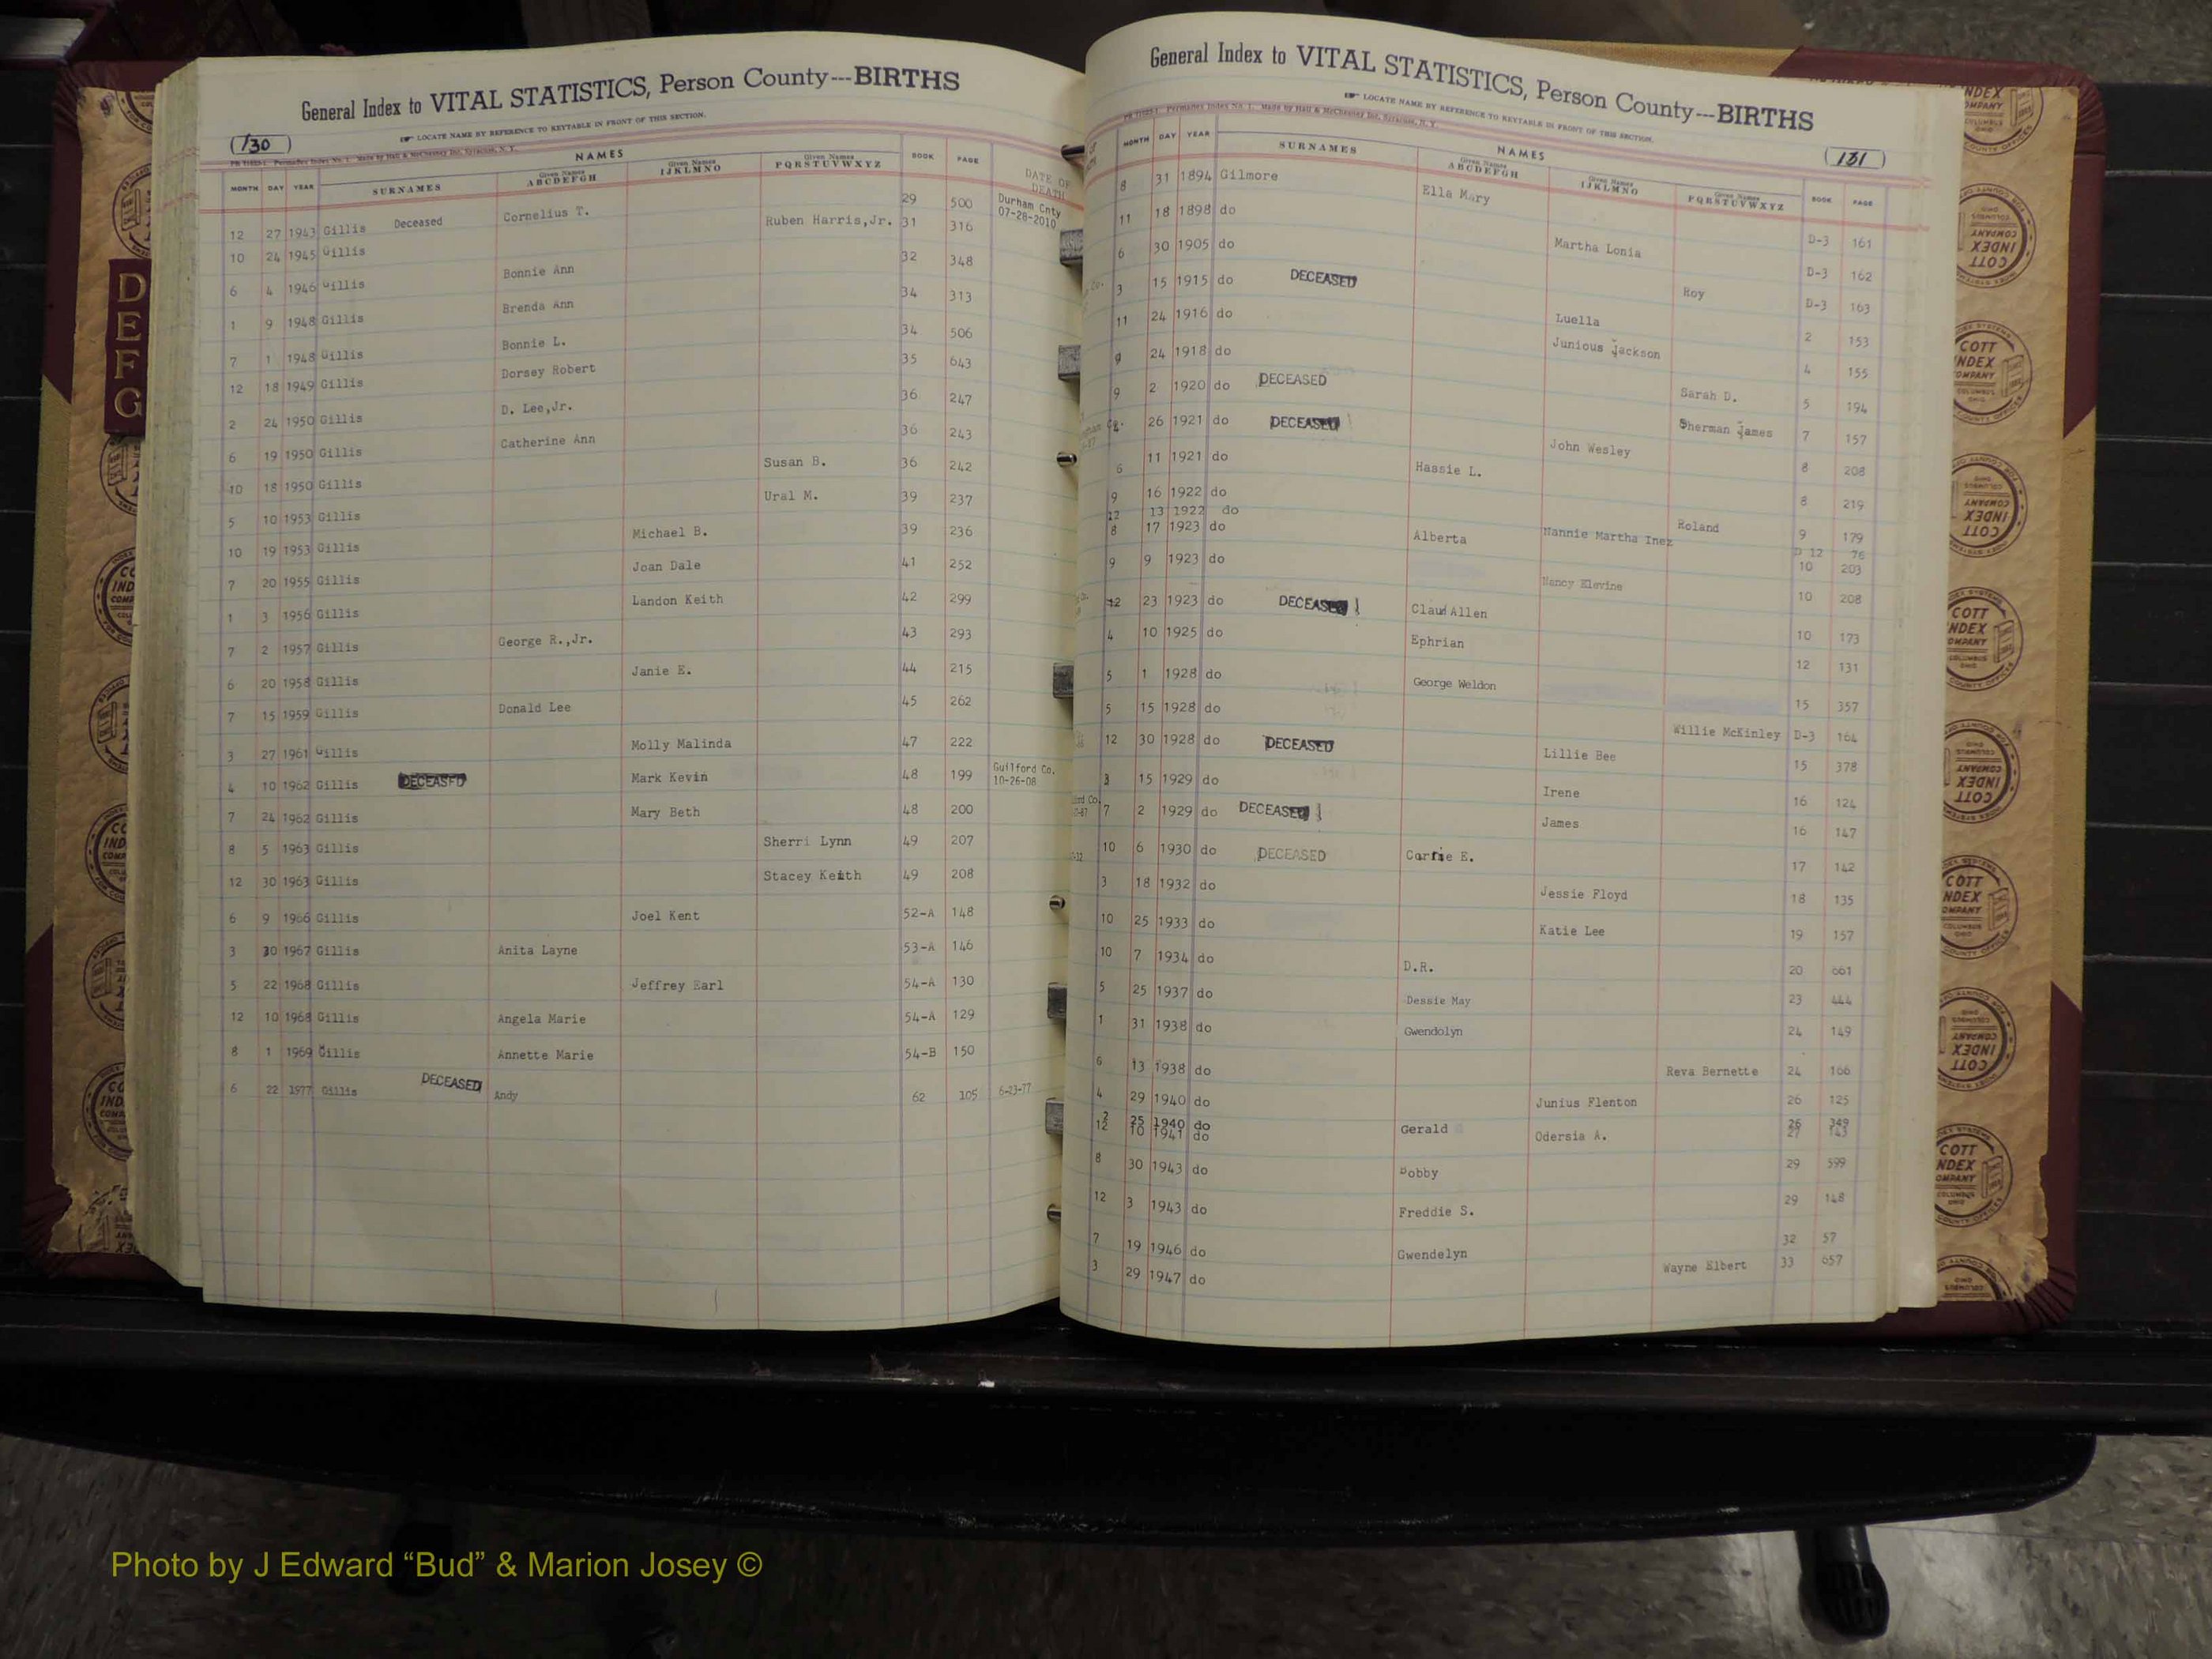 General Index to VITAL STATISTICS, Person County---BIRTHS
130
☞ LOCATE NAME BY REFERENCE TO KEYTABLE IN FRONT OF THIS SECTION.
NAMES
MONTH DAY YEAR SURNAMES Given Names ABCDEFGH Given Names IJKLMNO Given Names PQRSTUVWXYZ BOOK PAGE DATE OF DEATH
12 27 1943 Gillis Deceased Cornelius T. 29 500 Durham Cnty 07-28-2010
10 24 1945 Gillis Ruben Harris,Jr. 31 316
6 4 1946 Gillis Bonnie Ann 32 348
1 9 1948 Gillis Brenda Ann 34 313
7 1 1948 Gillis Bonnie L. 34 506
12 18 1949 Gillis Dorsey Robert 35 643
2 24 1950 Gillis D. Lee,Jr. 36 247
6 19 1950 Gillis Catherine Ann 36 243
10 18 1950 Gillis Susan B. 36 242
5 10 1953 Gillis Ural M. 39 237
10 19 1953 Gillis Michael B. 39 236
7 20 1955 Gillis Joan Dale 41 252
1 3 1956 Gillis Landon Keith 42 299
7 2 1957 Gillis George R.,Jr. 43 293
6 20 1958 Gillis Janie E. 44 215
7 15 1959 Gillis Donald Lee 45 262
3 27 1961 Gillis Molly Malinda 47 222
4 10 1962 Gillis DECEASED Mark Kevin 48 199 Guilford Co. 10-26-08
7 24 1962 Gillis Mary Beth 48 200
8 5 1963 Gillis Sherri Lynn 49 207
12 30 1963 Gillis Stacey Keith 49 208
6 9 1966 Gillis Joel Kent 52-A 148
3 30 1967 Gillis Anita Layne 53-A 146
5 22 1968 Gillis Jeffrey Earl 54-A 130
12 10 1968 Gillis Angela Marie 54-A 129
8 1 1969 Gillis Annette Marie 54-B 150
6 22 1977 Gillis DECEASED Andy 62 105 6-23-77
General Index to VITAL STATISTICS, Person County---BIRTHS
☞ LOCATE NAME BY REFERENCE TO KEYTABLE IN FRONT OF THIS SECTION.
131
NAMES
MONTH DAY YEAR SURNAMES Given Names ABCDEFGH Given Names IJKLMNO Given Names PQRSTUVWXYZ BOOK PAGE
8 31 1894 Gilmore Ella Mary D-3 161
11 18 1898 do Martha Lonia D-3 162
6 30 1905 do Roy D-3 163
3 15 1915 do DECEASED Luella 2 153
11 24 1916 do Junious Jackson 4 155
9 24 1918 do Sarah D. 5 194
9 2 1920 do DECEASED Sherman James 7 157
26 1921 do DECEASED John Wesley 8 208
6 11 1921 do Hassie L. 8 219
9 16 1922 do Roland 9 179
12 13 1922 do Nannie Martha Inez D 12 76
8 17 1923 do Alberta 10 203
9 9 1923 do Nancy Elevine 10 208
12 23 1923 do DECEASED Claud Allen 10 173
4 10 1925 do Ephrian 12 131
5 1 1928 do George Weldon 15 357
5 15 1928 do Willie McKinley D-3 164
12 30 1928 do DECEASED Lillie Bee 15 378
3 15 1929 do Irene 16 124
7 2 1929 do DECEASED James 16 147
10 6 1930 do DECEASED E. 17 142
3 18 1932 do Jessie Floyd 18 135
10 25 1933 do Katie Lee 19 157
10 7 1934 do D.R. 20 661
5 25 1937 do Dessie May 23 444
1 31 1938 do Gwendolyn 24 149
6 13 1938 do Reva Bernette 24 166
4 29 1940 do Junius Flenton 26 125
2 25 1940 do Gerald 26 349
12 10 1941 do Odersia A. 27 143
8 30 1943 do Bobby 29 599
12 3 1943 do Freddie S. 29 148
7 19 1946 do Gwendelyn 32 57
3 29 1947 do Wayne Elbert 33 657
D
E
F
G
COTT INDEX COMPANY COLUMBUS OHIO
Photo by J Edward “Bud” & Marion Josey ©